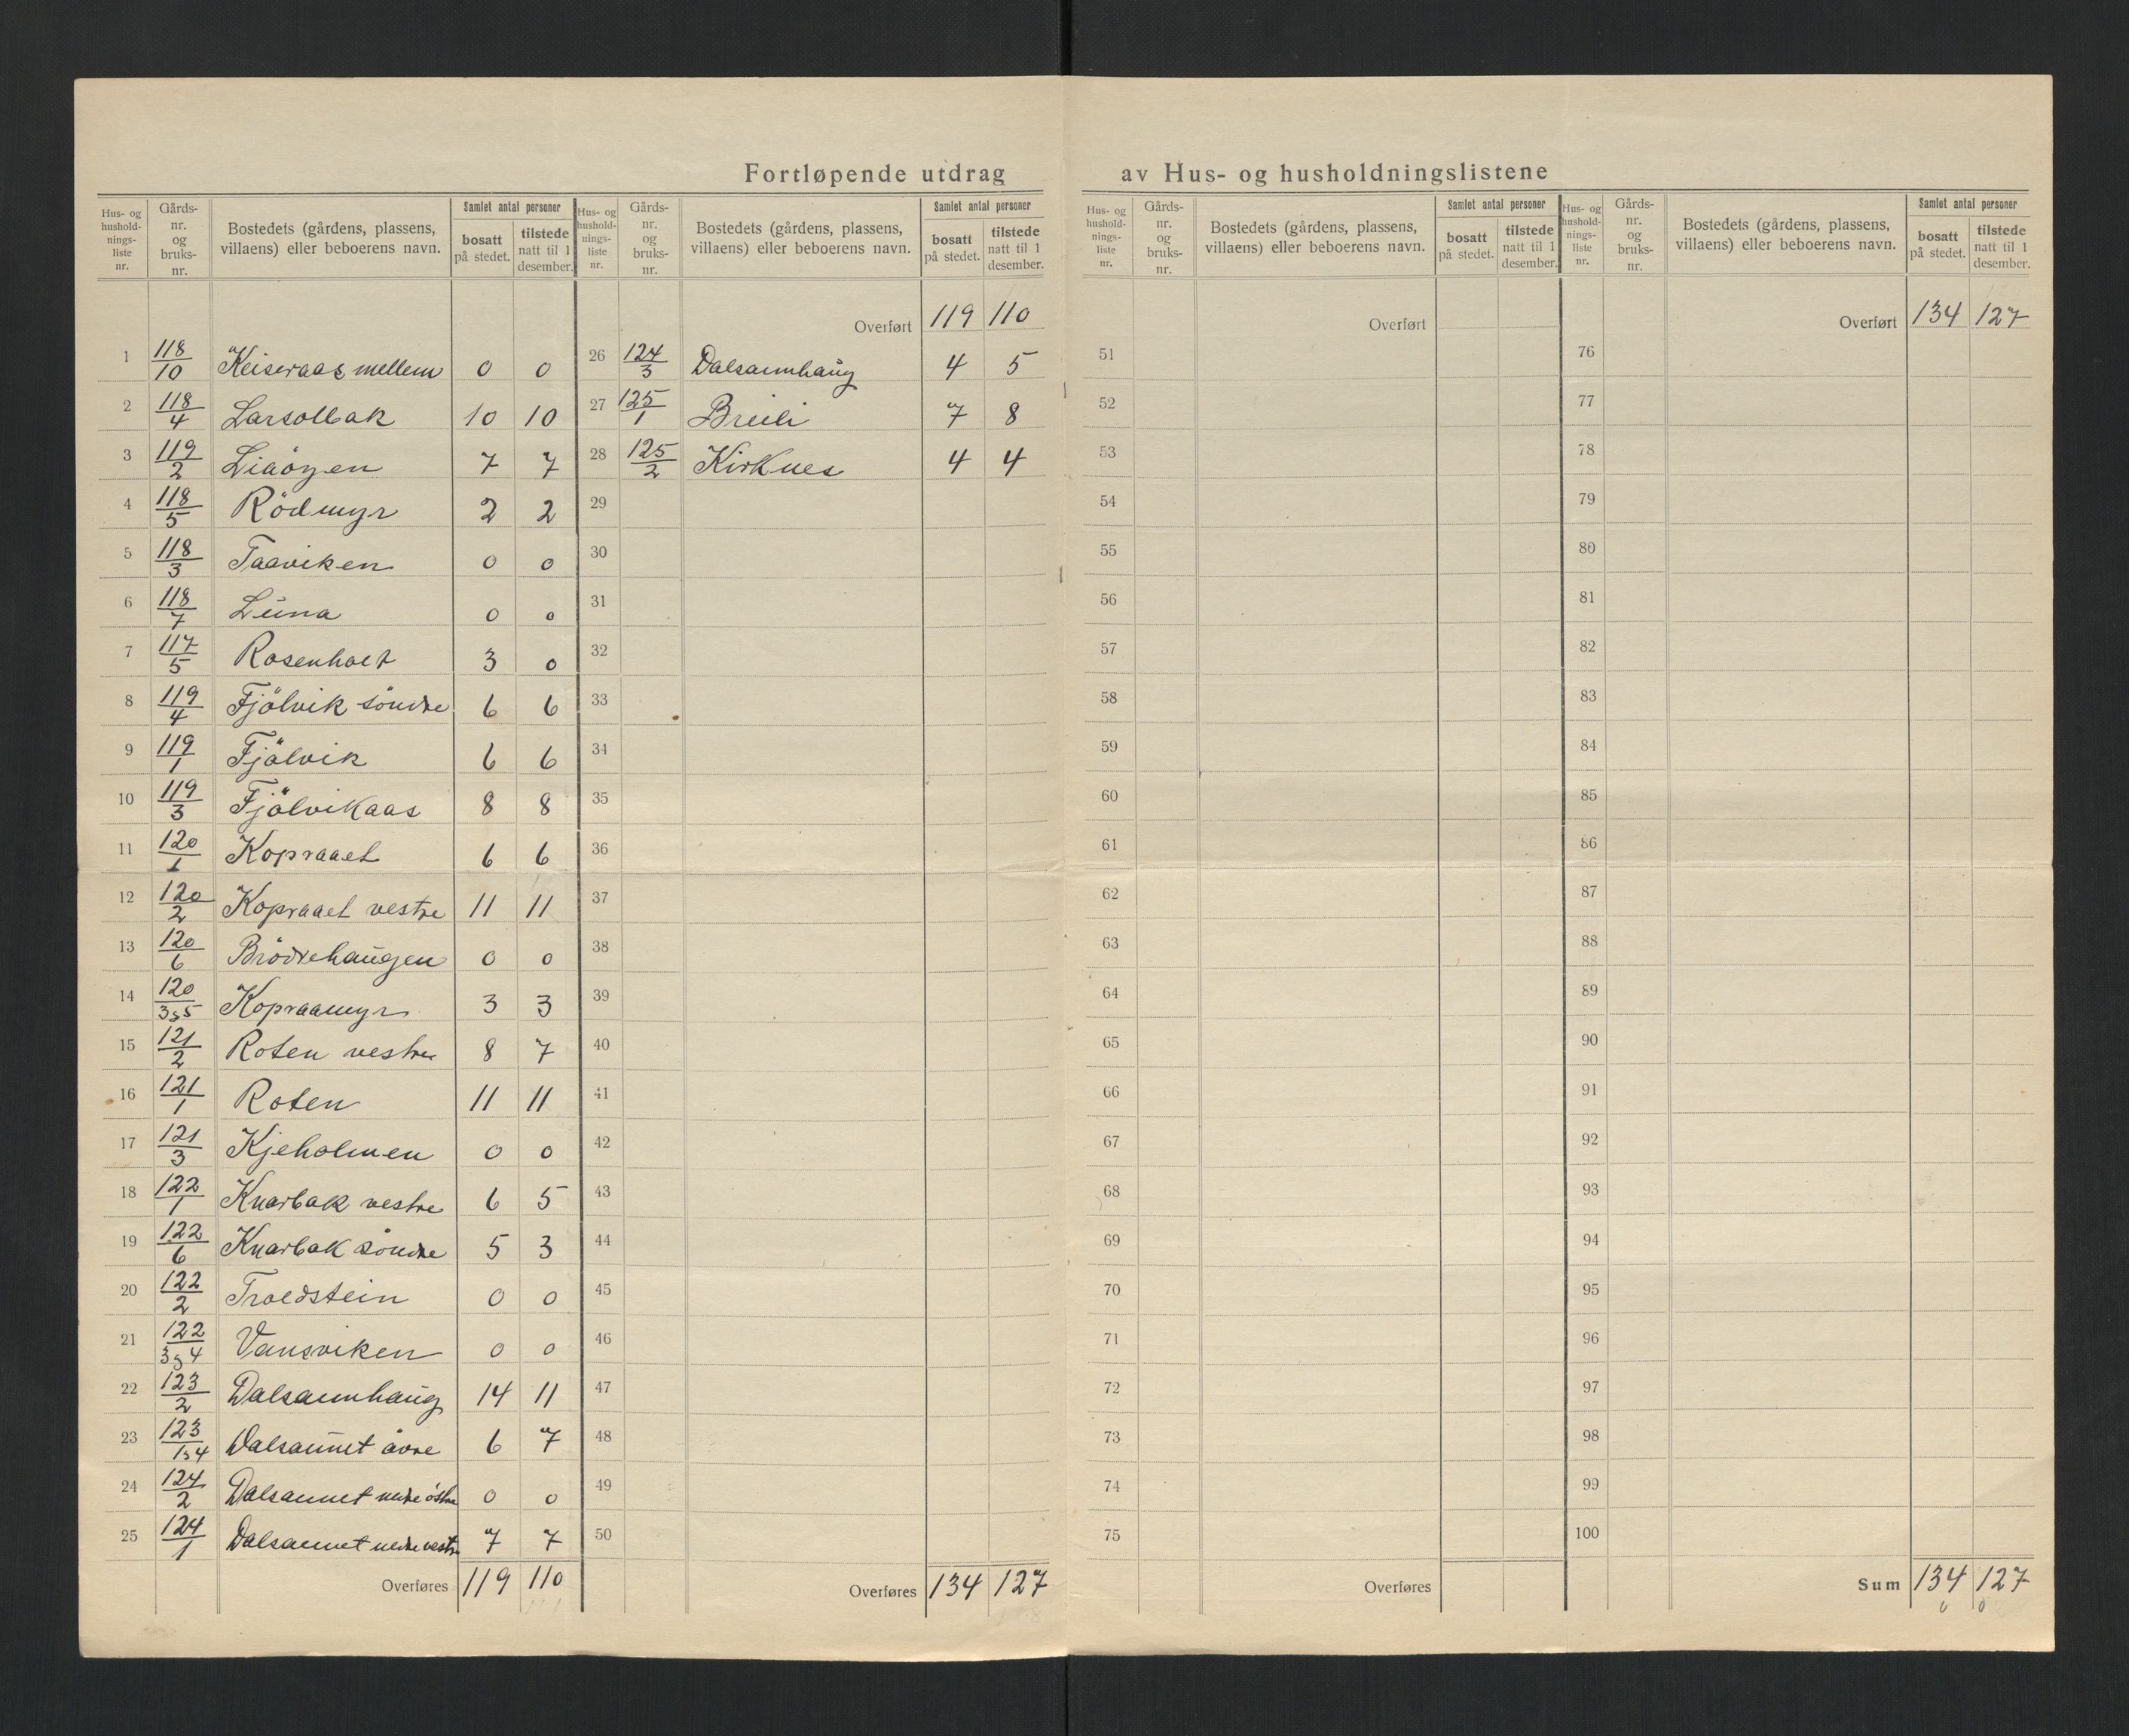 Fortløpende utdrag av Hus- og husholdningslistene
Hus- og hushold- nings- liste nr. | Gårds- nr. og bruks- nr. | Bostedets (gårdens, plassens, villaens) eller beboerens navn. | Samlet antal personer | bosatt på stedet. | tilstede natt til 1 desember.
1 118/10 Keiseraas mellem 0 0
2 118/4 Larsolbak 10 10
3 119/2 Liaöyen 7 7
4 118/5 Rödmyr 2 2
5 118/3 Taaviken 0 0
6 118/7 Luna 0 0
7 117/5 Rosenholt 3 0
8 119/4 Fjölvik söndre 6 6
9 119/1 Fjölvik 6 6
10 119/3 Fjölvikaas 8 8
11 120/1 Kopraaet 6 6
12 120/2 Kopraaet vestre 11 11
13 120/6 Brödrehaugen 0 0
14 120/3,5 Kopraamyr 3 3
15 121/2 Roten vestre 8 7
16 121/1 Roten 11 11
17 121/3 Kjeholmen 0 0
18 122/1 Knarbak vestre 6 5
19 122/6 Knarbak söndre 5 3
20 122/2 Troldstein 0 0
21 122/3,4 Vansviken 0 0
22 123/2 Dalsaunhaug 14 11
23 123/1,4 Dalsaunet övre 6 7
24 124/2 Dalsaunet nedre östre 0 0
25 124/1 Dalsaunet nedre vestre 7 7
Overføres 119 110
Hus- og hushold- nings- liste nr. | Gårds- nr. og bruks- nr. | Bostedets (gårdens, plassens, villaens) eller beboerens navn. | Samlet antal personer | bosatt på stedet. | tilstede natt til 1 desember.
Overført 119 110
26 124/3 Dalsaunhaug 4 5
27 125/1 Breili 7 8
28 125/2 Kirknes 4 4
29
30
31
32
33
34
35
36
37
38
39
40
41
42
43
44
45
46
47
48
49
50
Overføres 134 127
Hus- og hushold- nings- liste nr. | Gårds- nr. og bruks- nr. | Bostedets (gårdens, plassens, villaens) eller beboerens navn. | Samlet antal personer | bosatt på stedet. | tilstede natt til 1 desember.
Overført
51
52
53
54
55
56
57
58
59
60
61
62
63
64
65
66
67
68
69
70
71
72
73
74
75
Overføres
Hus- og hushold- nings- liste nr. | Gårds- nr. og bruks- nr. | Bostedets (gårdens, plassens, villaens) eller beboerens navn. | Samlet antal personer | bosatt på stedet. | tilstede natt til 1 desember.
Overført 134 127
76
77
78
79
80
81
82
83
84
85
86
87
88
89
90
91
92
93
94
95
96
97
98
99
100
Sum 134 127